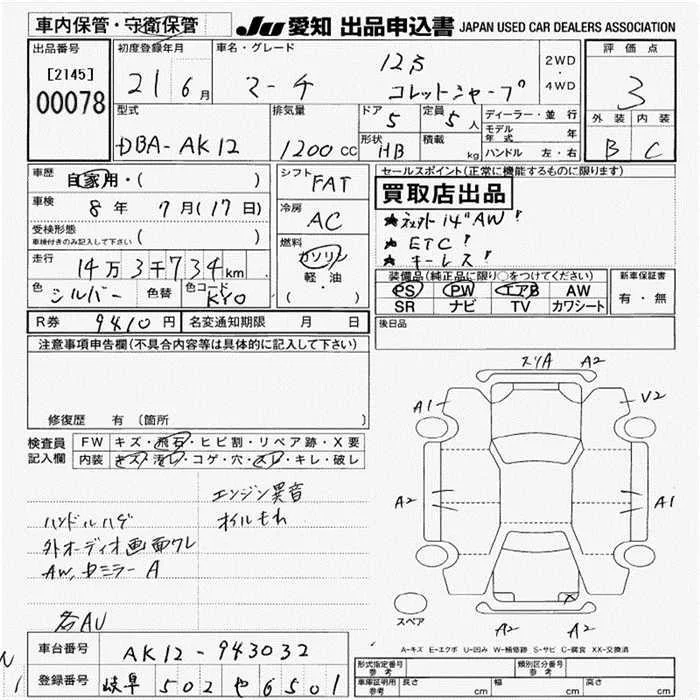 車内保管・守衛保管
JU 愛知 出品申込書 JAPAN USED CAR DEALERS ASSOCIATION
出品番号
[2145]
00078
初度登録年月
21 6月
車名・グレード
マーチ
12S
コレットシャープ
2WD
・
4WD
評価点
3
外装 内装
B C
型式
DBA-AK12
排気量
1200 CC
ドア
5
定員
5人
形状
HB
積載
kg
ディーラー・並行
モデル年式 年
ハンドル 左・右
車歴
自家用・( )
車検
8年 7月(17日)
受検形態
車検付きのみ記入して下さい ( )
走行
14万3千734km
色
シルバー
色替
色コード
KY0
シフト
FAT
冷房
AC
燃料
ガソリン
軽・油
( )
セールスポイント(正常に機能するものに限ります)
買取店出品
★ 14"AW!
★ETC!
★キーレス!
装備品(純正品に限り○をつけてください)
PS PW エアB AW
SR ナビ TV カワシート
新車保証書
有・無
後日品
R券 9410円 名変通知期限 月 日
注意事項申告欄(不具合内容等は具体的に記入して下さい)
修復歴 有 (箇所 )
検査員
記入欄
FW キズ・飛石・ヒビ割・リペア跡・X要
内装 キズ・汚レ・コゲ・穴・スレ・キレ・破レ
エンジン異音
オイルもれ
ハンドルハゲ
外オーディオ画面ワレ
AW, ロミラー A
各AU
スリA A2
A1 V2
A2 A1
スペア
A2 A2
A-キズ E-エクボ U-凹み W-補修跡 S-サビ C-腐食 XX-交換済
車台番号 AK12-943032
登録番号 岐阜 502 や 6501
形式指定番号
参考
類別区分番号
参考
車庫証明用
参考
長さ cm 幅 cm 高さ cm